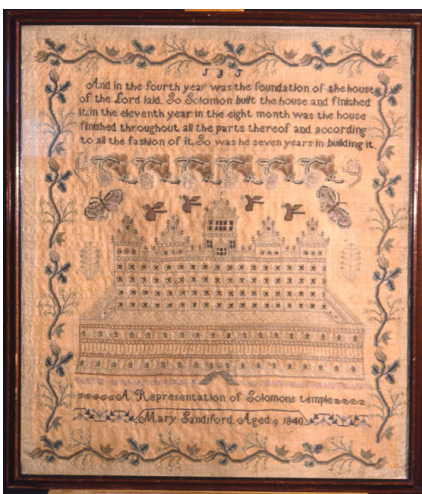 And in the fourth year was the foundation of the house
of the Lord laid. So Solomon built the house and finished
it, in the eleventh year in the eight month was the house
finished throughout all the parts thereof and according
to all the fashion of it. So was he seven years in building it.
A Representation of Solomons temple
Mary Sandiford Aged 9 1840